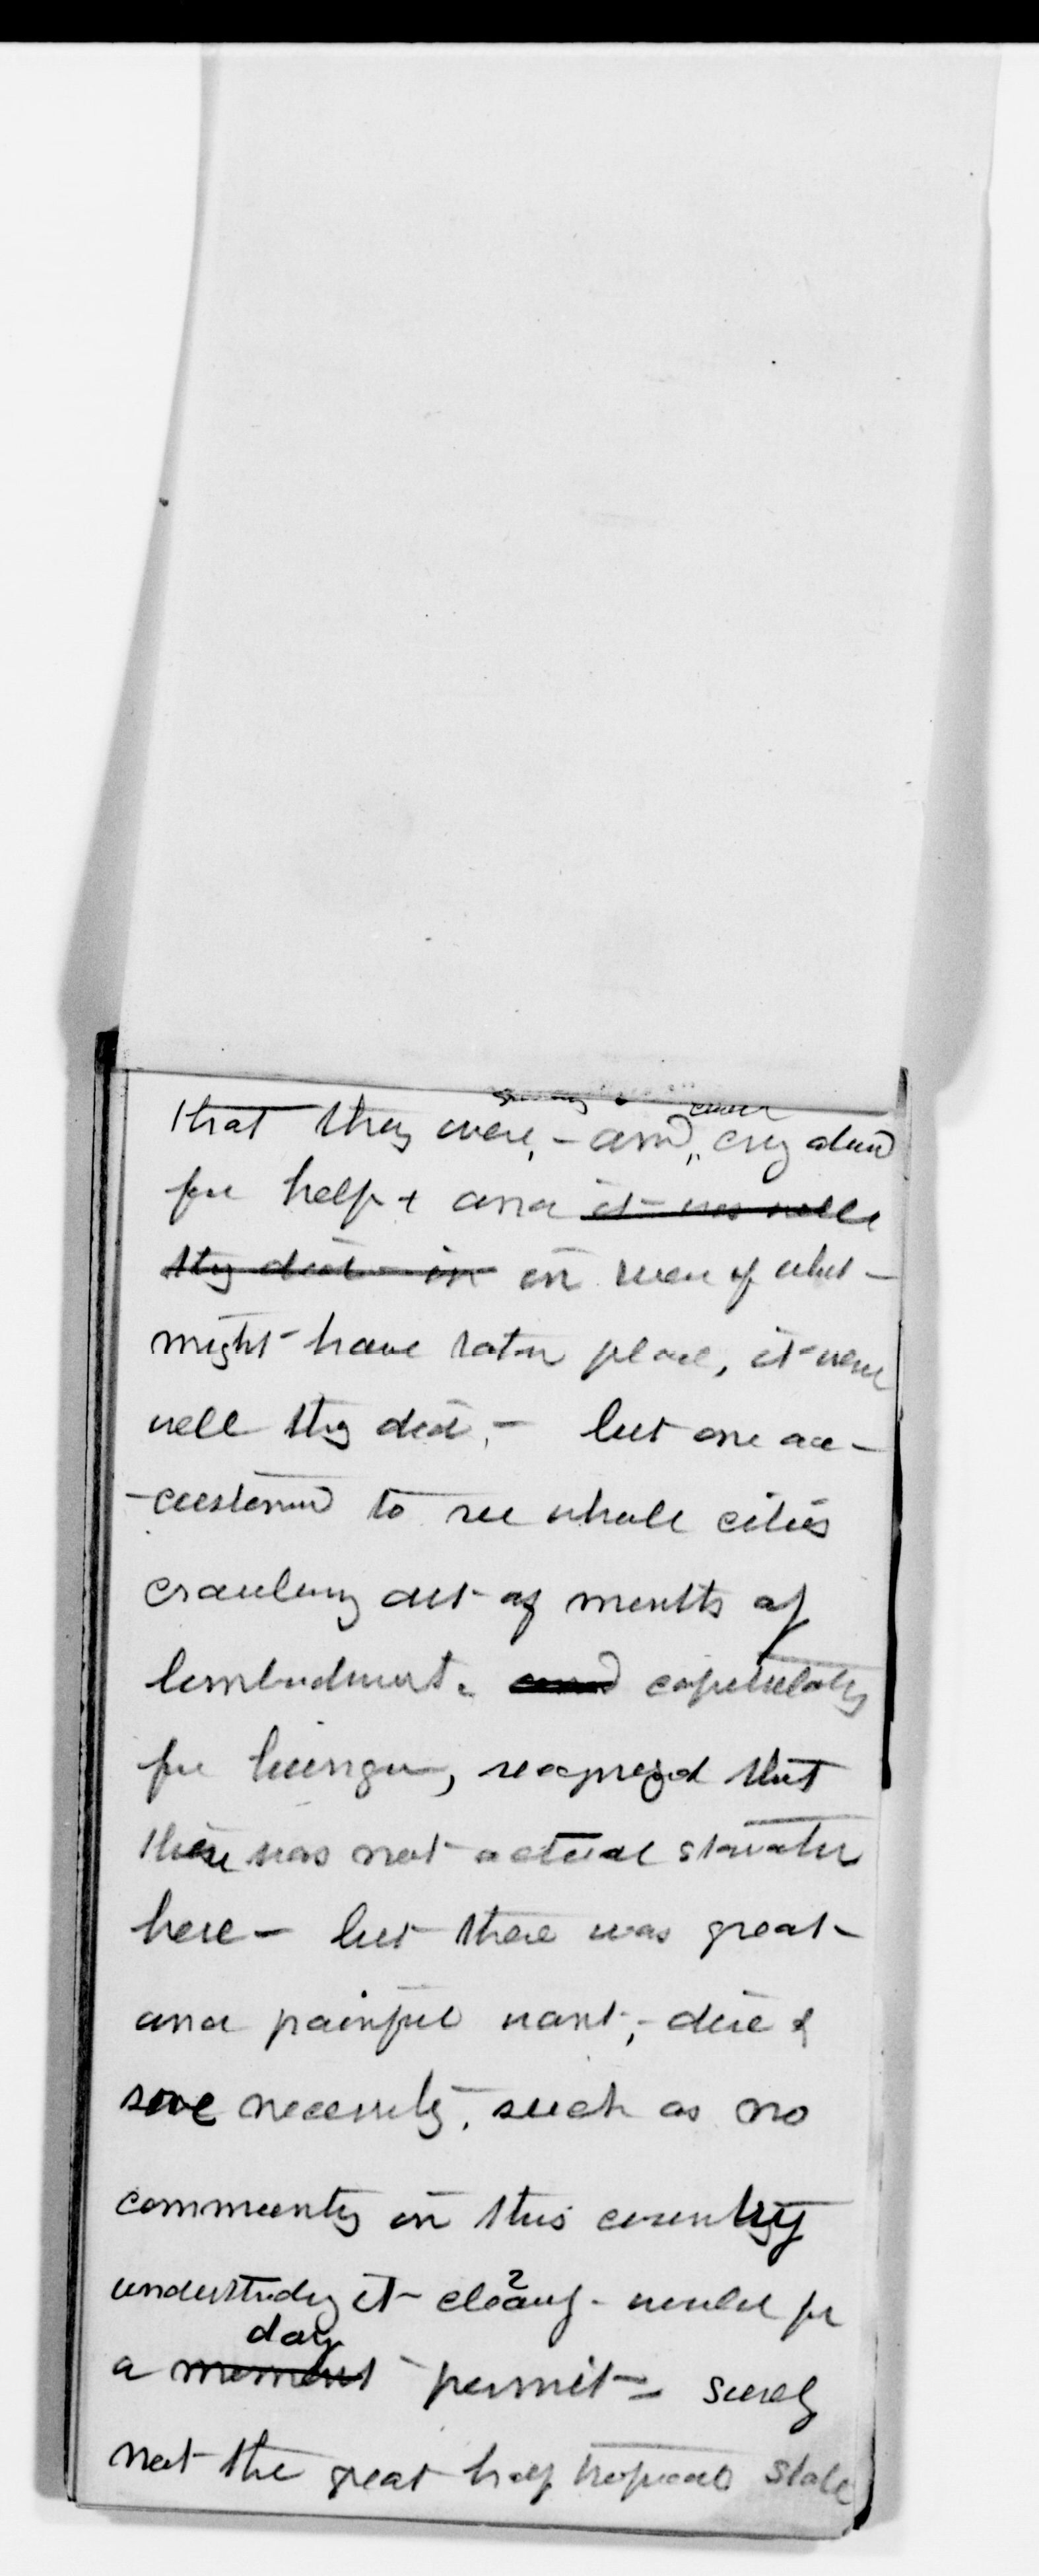 that they were, - and, cry aloud
for help & and it was well
they did - in in view of what -
might have taken place, it were
well they did, - but one ac-
-customed to see whole cities
crawling out of months of
bombardment & and capitulating
for hunger, recognized that
there was not actual starvation
here - but there was great
and painful want, - dire &
sore necessity, such as no
community in this country
understanding it clearly - would for
day
a moment permit - surely
not the great half tropical State